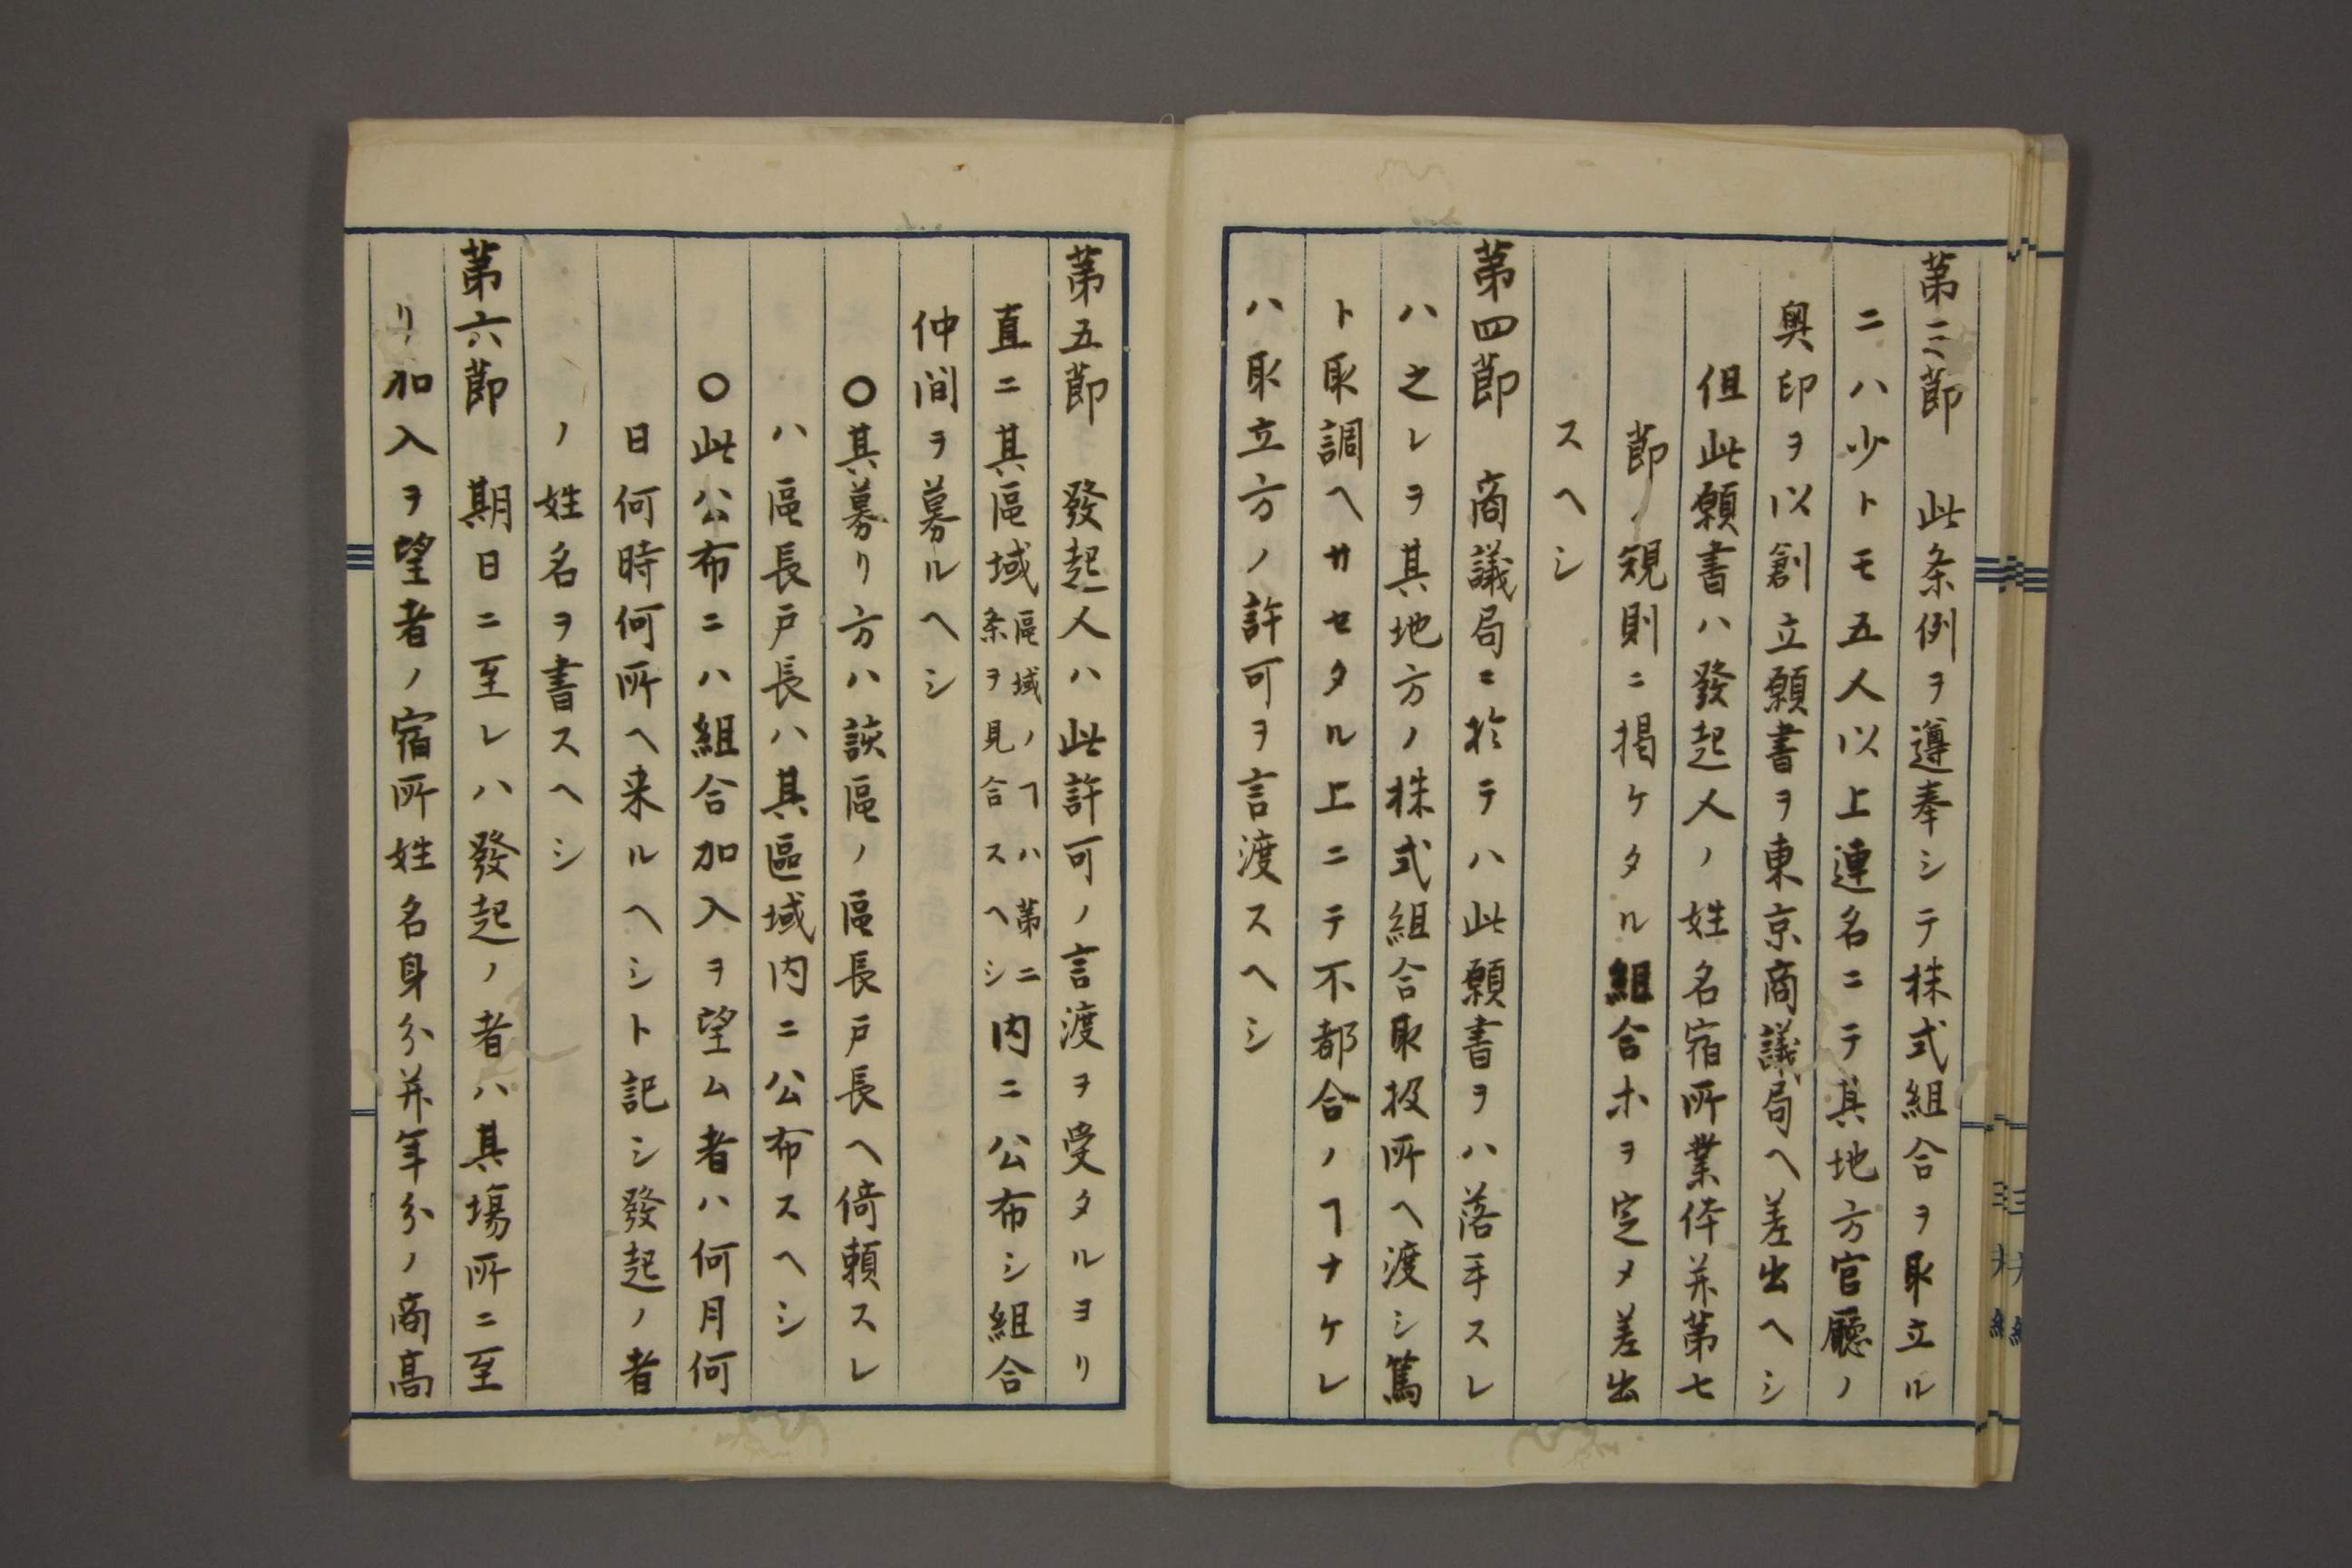 第三節　此条例ヲ遵奉シテ株式組合ヲ取立ル
ニハ少トモ五人以上連名ニテ其地方官廳ノ
奥印ヲ以創立願書ヲ東京商議局ヘ差出ヘシ
但此願書ハ發起人ノ姓名宿所業体并第七
節ノ規則ニ掲ケタル組合ホヲ定メ差出
スヘシ
第四節　商議局ニ於テハ此願書ヲハ落手スレ
ハ之レヲ其地方ノ株式組合取扱所ヘ渡シ篤
ト取調ヘサセタル上ニテ不都合ノヿナケレ
ハ取立方ノ許可ヲ言渡スヘシ
第五節　發起人ハ此許可ノ言渡ヲ受タルヨリ
直ニ其區域區域ノヿハ第二条ヲ見合スヘシ内ニ公布シ組合
仲間ヲ募ルヘシ
〇其募リ方ハ該區ノ區長戸長ヘ倚頼スレ
ハ區長戸長ハ其區域内ニ公布スヘシ
〇此公布ニハ組合加入ヲ望ム者ハ何月何
日何時何所ヘ来ルヘシト記シ發起ノ者
ノ姓名ヲ書スヘシ
第六節　期日ニ至レハ發起ノ者ハ其場所ニ至
リ加入ヲ望者ノ宿所姓名身分并年分ノ商高